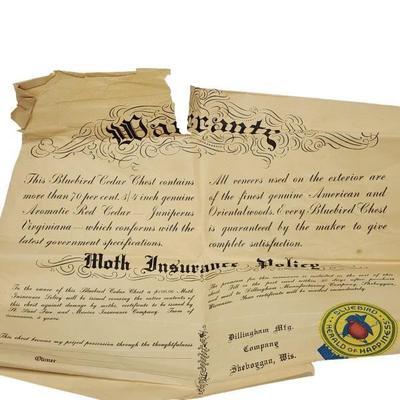 Warranty
This Bluebird Cedar Chest contains
more than 70 per cent, 3/4 inch genuine
Aromatic Red Cedar — Juniperus
Virginiana — which conforms with the
latest government specifications.
All veneers used on the exterior are
of the finest genuine American and
Oriental woods. Every Bluebird Chest
is guaranteed by the maker to give
complete satisfaction.
Moth Insurance Policy
To the owner of this Bluebird Cedar Chest a
Insurance Policy will be issued covering the entire contents of
this chest against damage by moths, certificate to be issued by
St. Paul Fire and Marine Insurance Company. Term of
insurance
This chest became my prized possession through the thoughtfulness
Owner
insurance is included in the cost of this
Manufacturing Company, Sheboygan,
Wisconsin. Your certificate will be mailed immediately.
Dillingham Mfg.
Company
Sheboygan, Wis.
BLUEBIRD
HERALD OF HAPPINESS